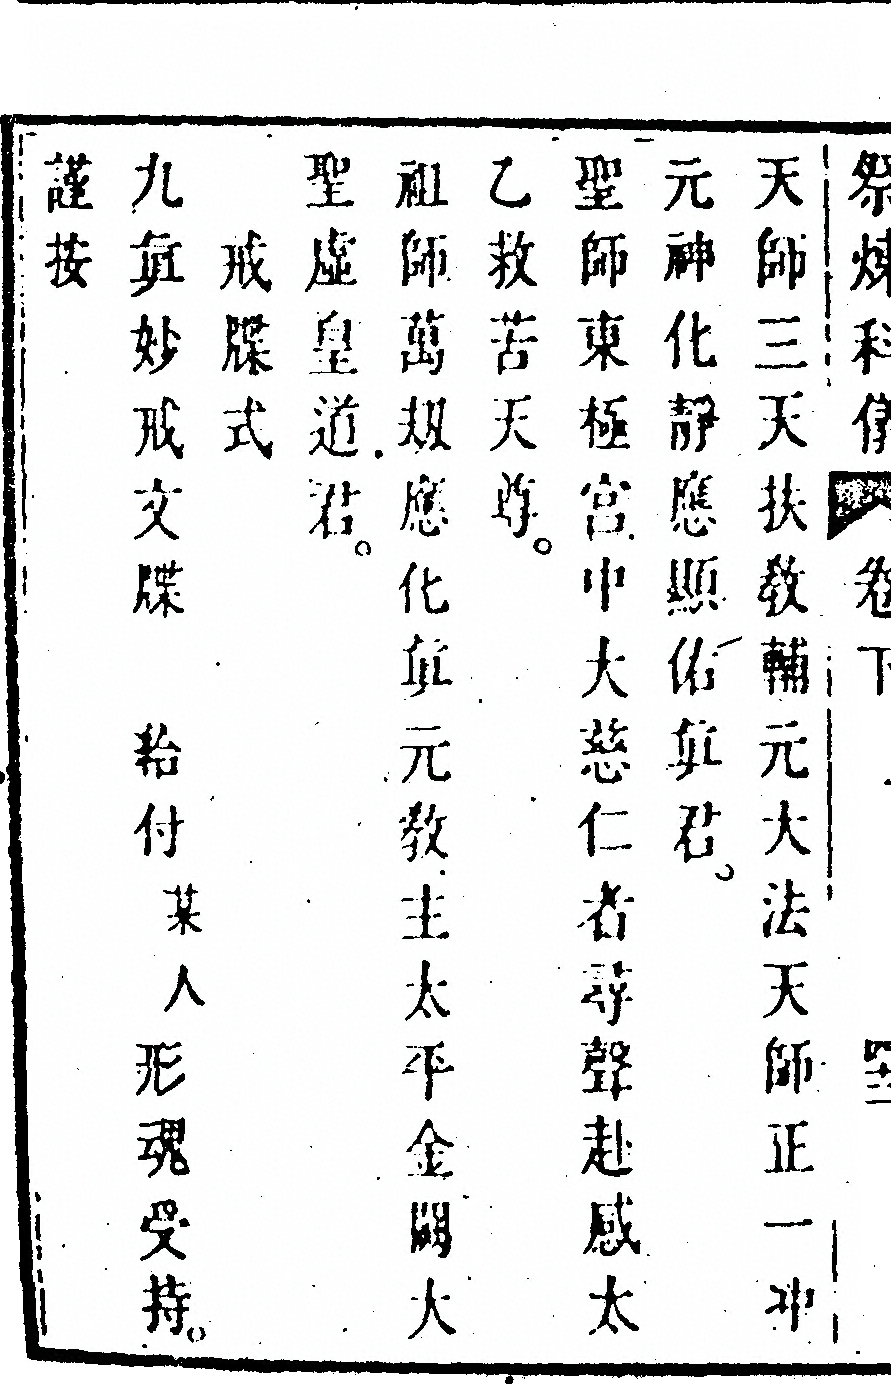 祭煉科儀 卷下 四十二
天師三天扶教輔元大法天師正一冲
元神化靜應顯佑真君。
聖師東極宮中大慈仁者尋聲赴感太
乙救苦天尊。
祖師萬刼應化真元教主太平金闕大
聖虛皇道君。
戒牒式
九真妙戒文牒 給付某人形魂受持。
謹按